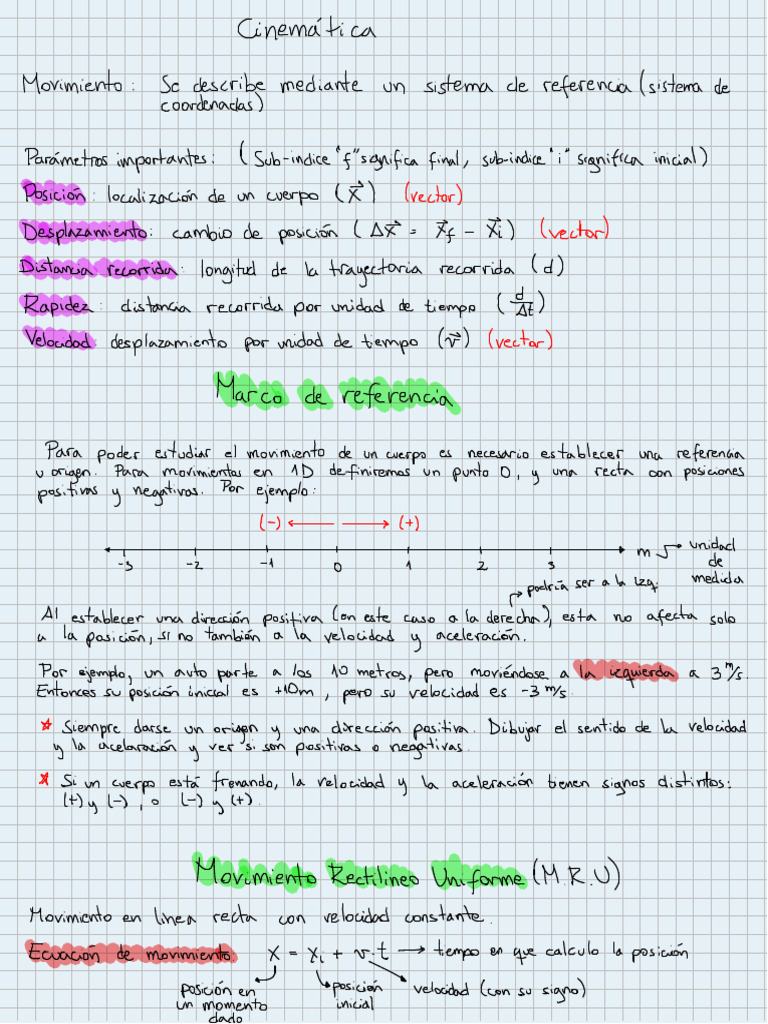 Cinemática
Movimiento: Se describe mediante un sistema de referencia (sistema de
coordenadas)
Parámetros importantes: (Sub-indice "f" significa final, sub-indice "i" significa inicial)
Posición: localización de un cuerpo (x⃗) (vector)
Desplazamiento: cambio de posición (Δx⃗ = x⃗f - x⃗i) (vector)
Distancia recorrida: longitud de la trayectoria recorrida (d)
Rapidez: distancia recorrida por unidad de tiempo (d/Δt)
Velocidad: desplazamiento por unidad de tiempo (v⃗) (vector)
Marco de referencia
Para poder estudiar el movimiento de un cuerpo es necesario establecer una referencia
u origen. Para movimientos en 1D definiremos un punto 0, y una recta con posiciones
positivas y negativas. Por ejemplo:
(-) ← → (+)
-3 -2 -1 0 1 2 3 m → unidad
de
medida
→ podría ser a la izq.
Al establecer una dirección positiva (en este caso a la derecha), esta no afecta solo
a la posición, si no también a la velocidad y aceleración.
Por ejemplo, un auto parte a los 10 metros, pero moviéndose a la izquierda a 3 m/s.
Entonces su posición inicial es +10m, pero su velocidad es -3 m/s.
* Siempre darse un origen y una dirección positiva. Dibujar el sentido de la velocidad
y la acelaración y ver si son positivas o negativas.
* Si un cuerpo está frenando, la velocidad y la aceleración tienen signos distintos:
(+) y (-), o (-) y (+).
Movimiento Rectilineo Uniforme (M.R.U)
Movimento en linea recta con velocidad constante.
Ecuación de movimiento: x = xi + v·t → tiempo en que calculo la posición
posición en
un momento
dado
posición
inicial
velocidad (con su signo)